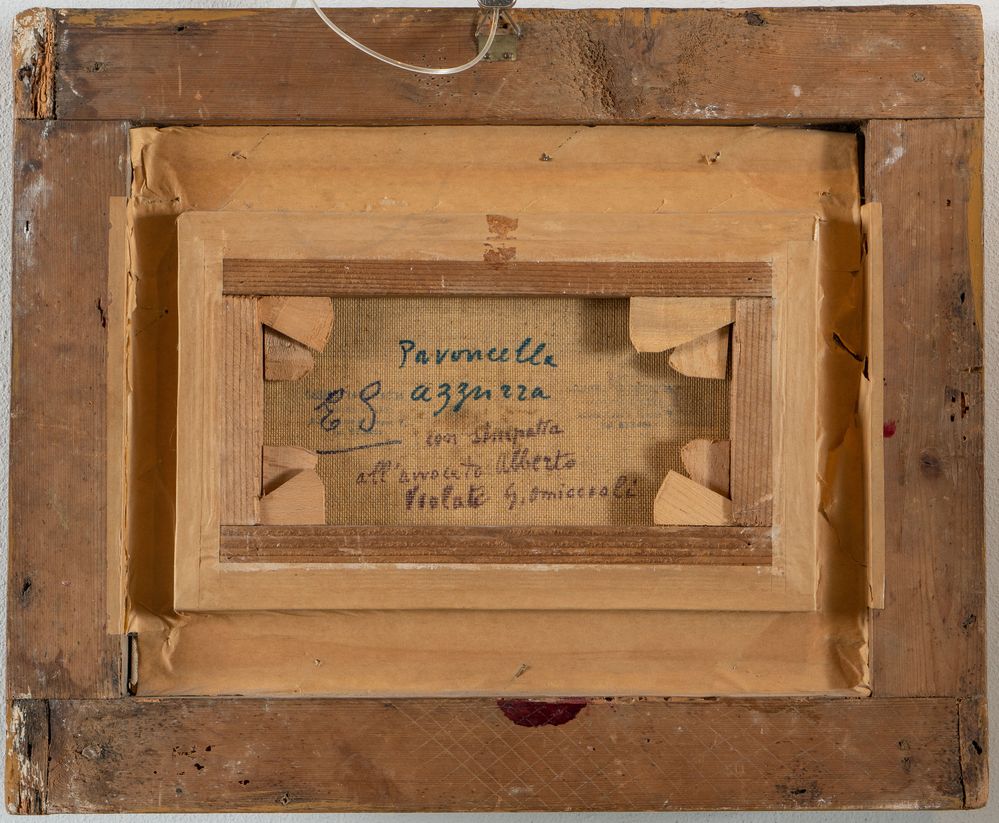 Pavoncella
azzurra
E G
con simpatia
all'avvocato Alberto
Violate G. Omiccioli